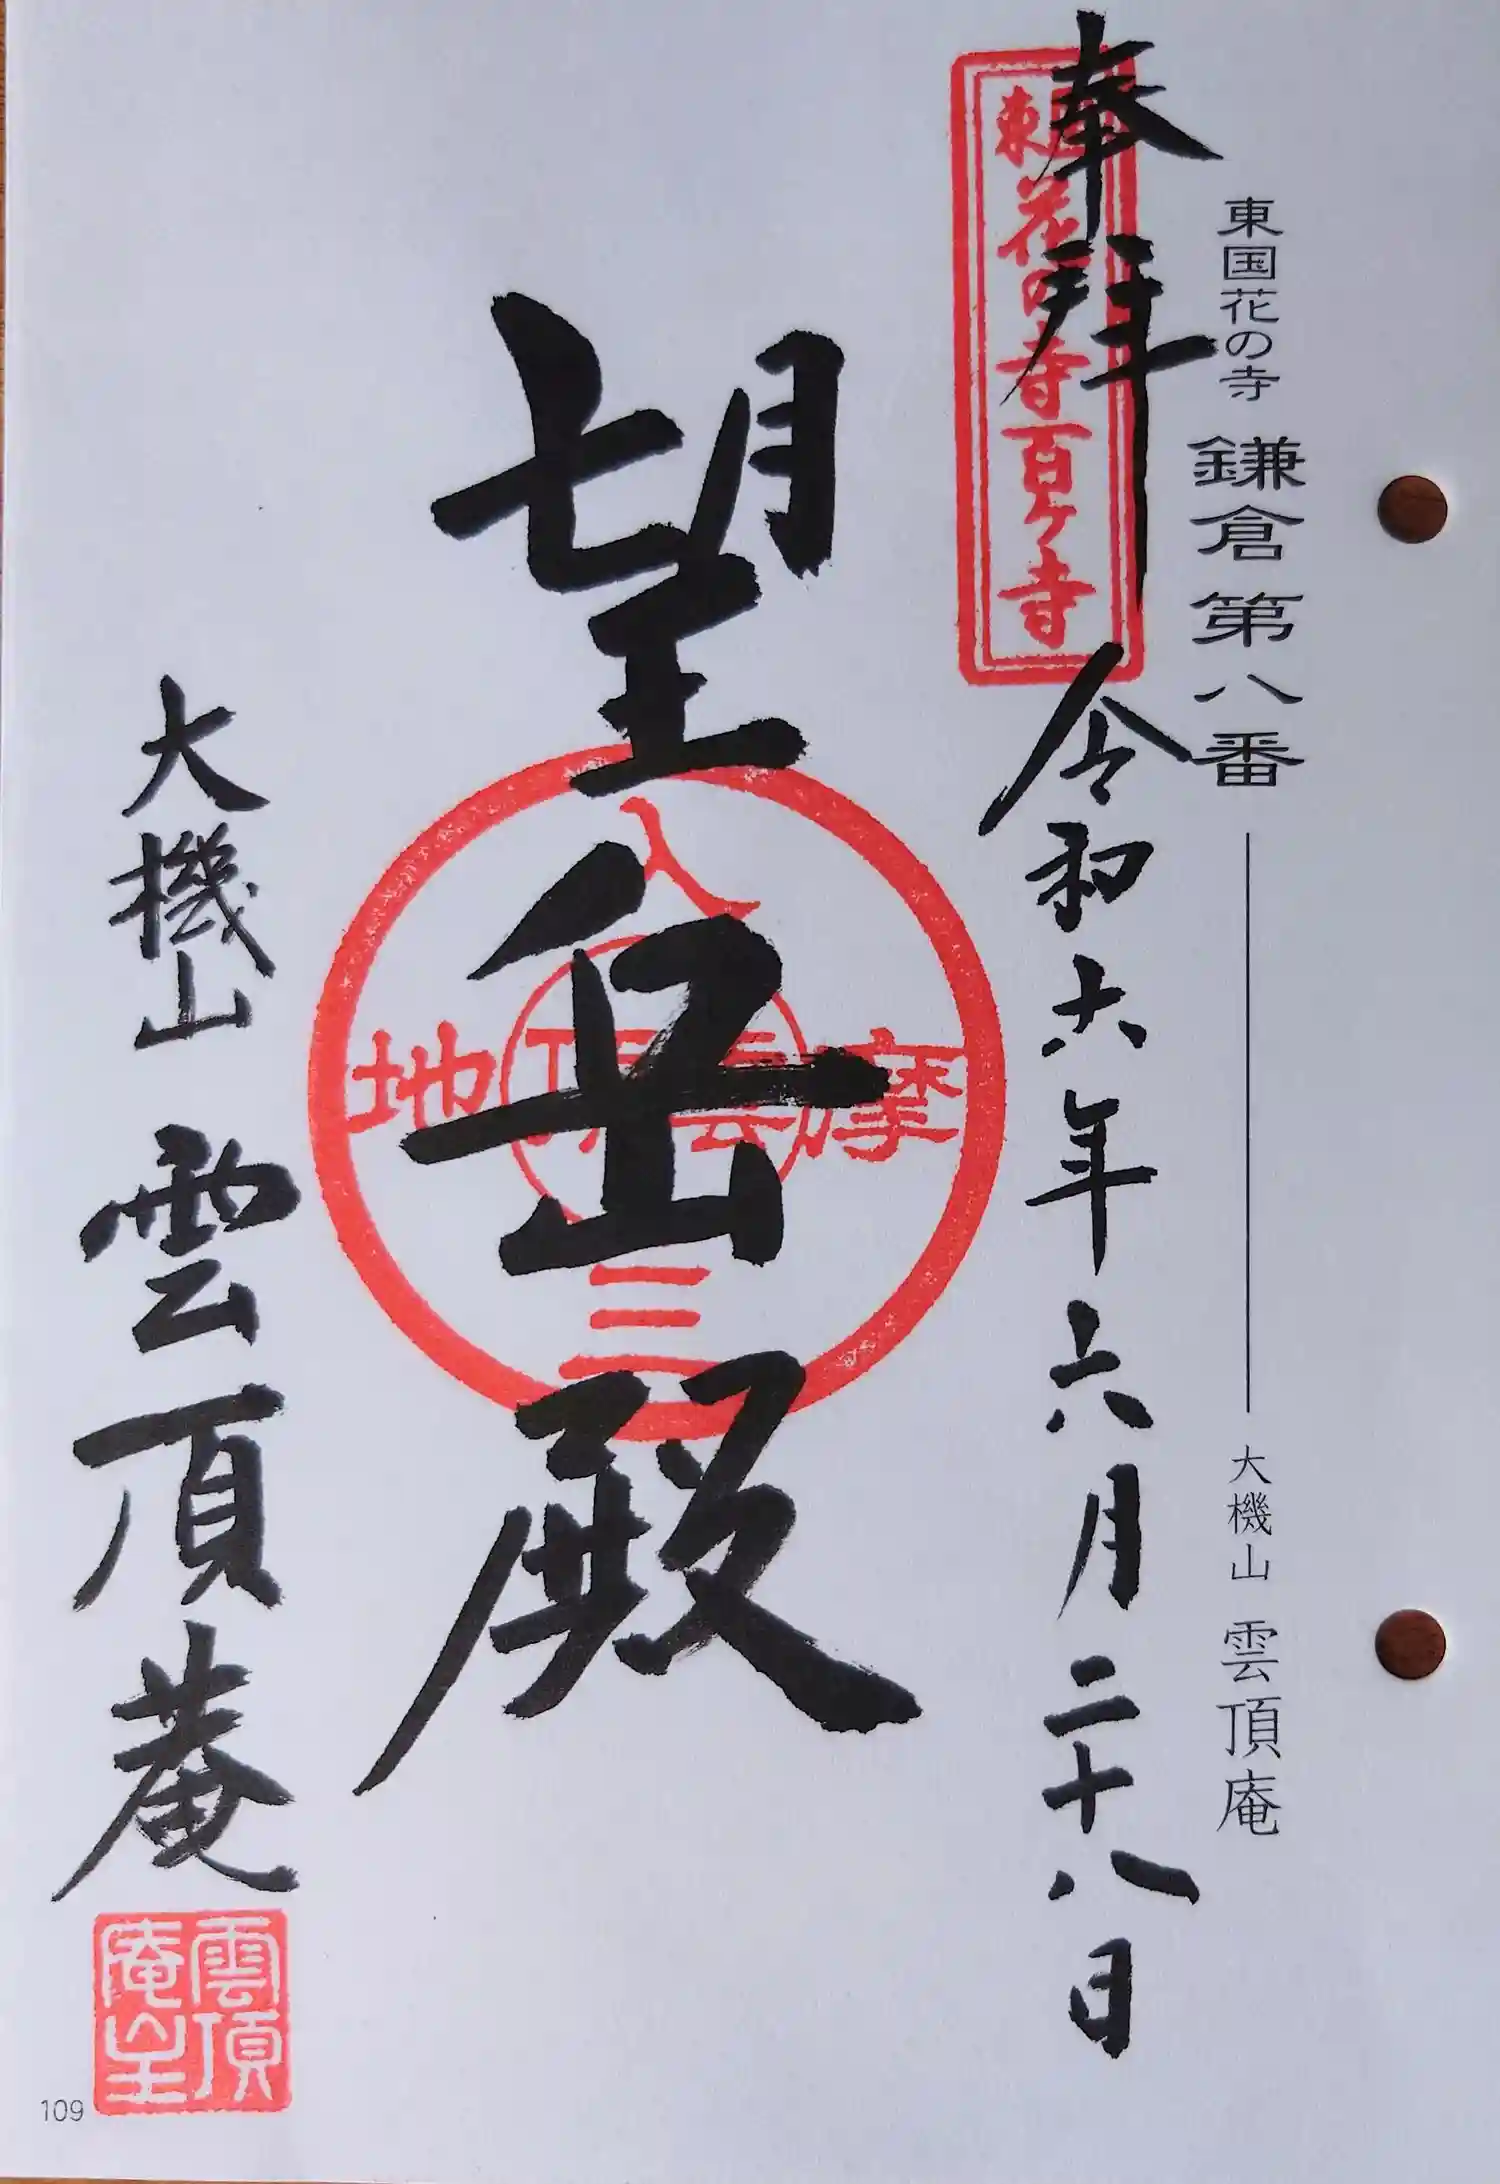 東国花の寺 鎌倉第八番 大機山 雲頂庵
奉拝 令和六年六月二十八日
東国花の寺百ケ寺
望岳殿
三
地 頂雲 摩
大機山 雲頂菴
雲頂
庵主
109